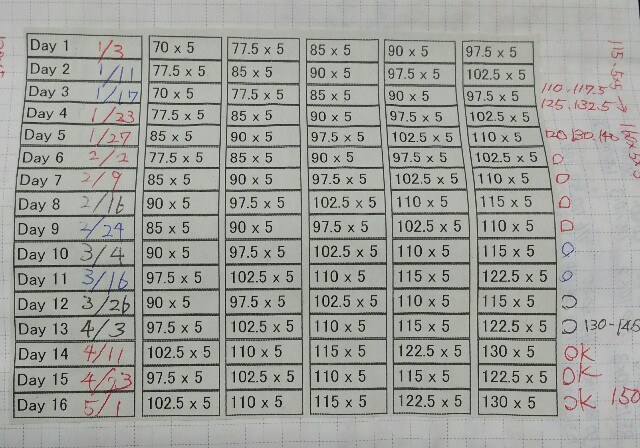 Day 1 1/3 70 x 5 77.5 x 5 85 x 5 90 x 5 97.5 x 5
Day 2 1/11 77.5 x 5 85 x 5 90 x 5 97.5 x 5 102.5 x 5
Day 3 1/17 70 x 5 77.5 x 5 85 x 5 90 x 5 97.5 x 5 110.117.5
Day 4 1/23 77.5 x 5 85 x 5 90 x 5 97.5 x 5 102.5 x 5 125.132.5
Day 5 1/27 85 x 5 90 x 5 97.5 x 5 102.5 x 5 110 x 5 120.130.140
Day 6 2/2 77.5 x 5 85 x 5 90 x 5 97.5 x 5 102.5 x 5 O
Day 7 2/9 85 x 5 90 x 5 97.5 x 5 102.5 x 5 110 x 5 O
Day 8 2/16 90 x 5 97.5 x 5 102.5 x 5 110 x 5 115 x 5 O
Day 9 2/24 85 x 5 90 x 5 97.5 x 5 102.5 x 5 110 x 5 O
Day 10 3/4 90 x 5 97.5 x 5 102.5 x 5 110 x 5 115 x 5 O
Day 11 3/16 97.5 x 5 102.5 x 5 110 x 5 115 x 5 122.5 x 5 O
Day 12 3/26 90 x 5 97.5 x 5 102.5 x 5 110 x 5 115 x 5 O
Day 13 4/3 97.5 x 5 102.5 x 5 110 x 5 115 x 5 122.5 x 5 O 130-145
Day 14 4/11 102.5 x 5 110 x 5 115 x 5 122.5 x 5 130 x 5 OK
Day 15 4/23 97.5 x 5 102.5 x 5 110 x 5 115 x 5 122.5 x 5 OK
Day 16 5/1 102.5 x 5 110 x 5 115 x 5 122.5 x 5 130 x 5 OK 150